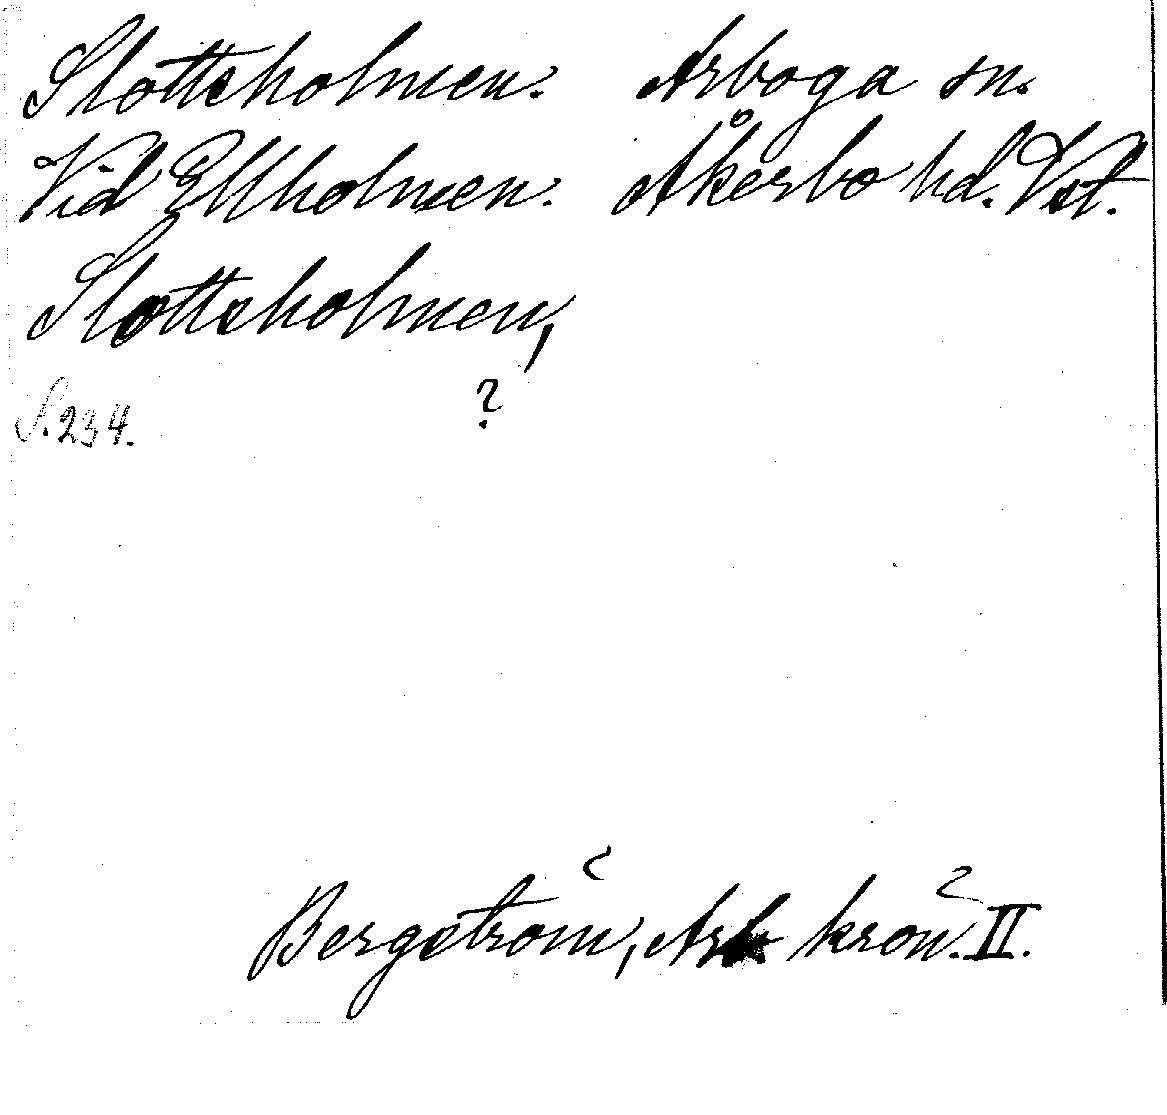 Slottsholmen. Arboga sn.
Vid Ellholmen. Åkerbo hd. Vst.
Slottsholmen,
?
S. 234.
Bergström, Arb. krön. II.